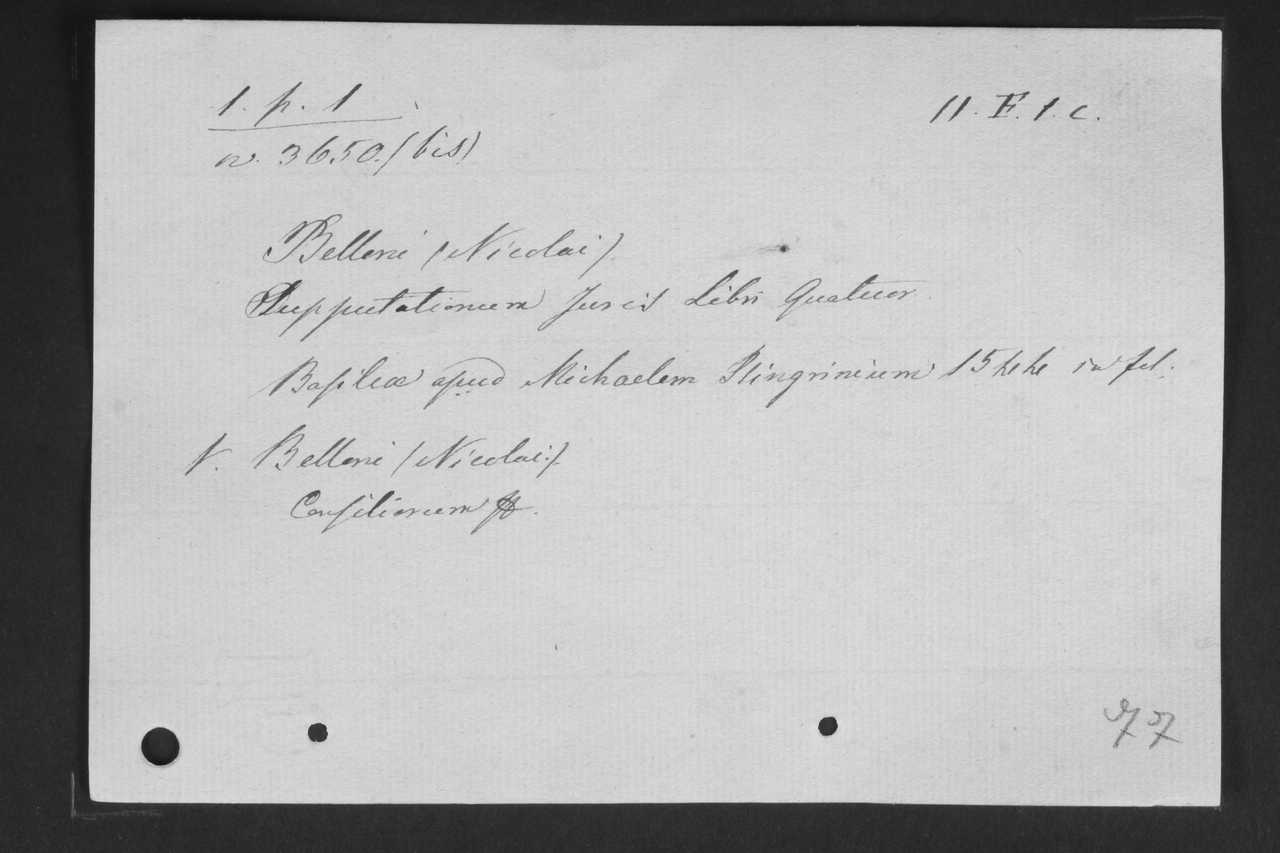 1. p. 1
11. F. 1. c.
n. 3650. (bis)
Belloni (Nicolai)
Supputationum Juris Libri Quatuor.
Basileæ apud Michaelem Isingrinium 1544 in fol.
V. Belloni (Nicolai.)
Consiliorum
77